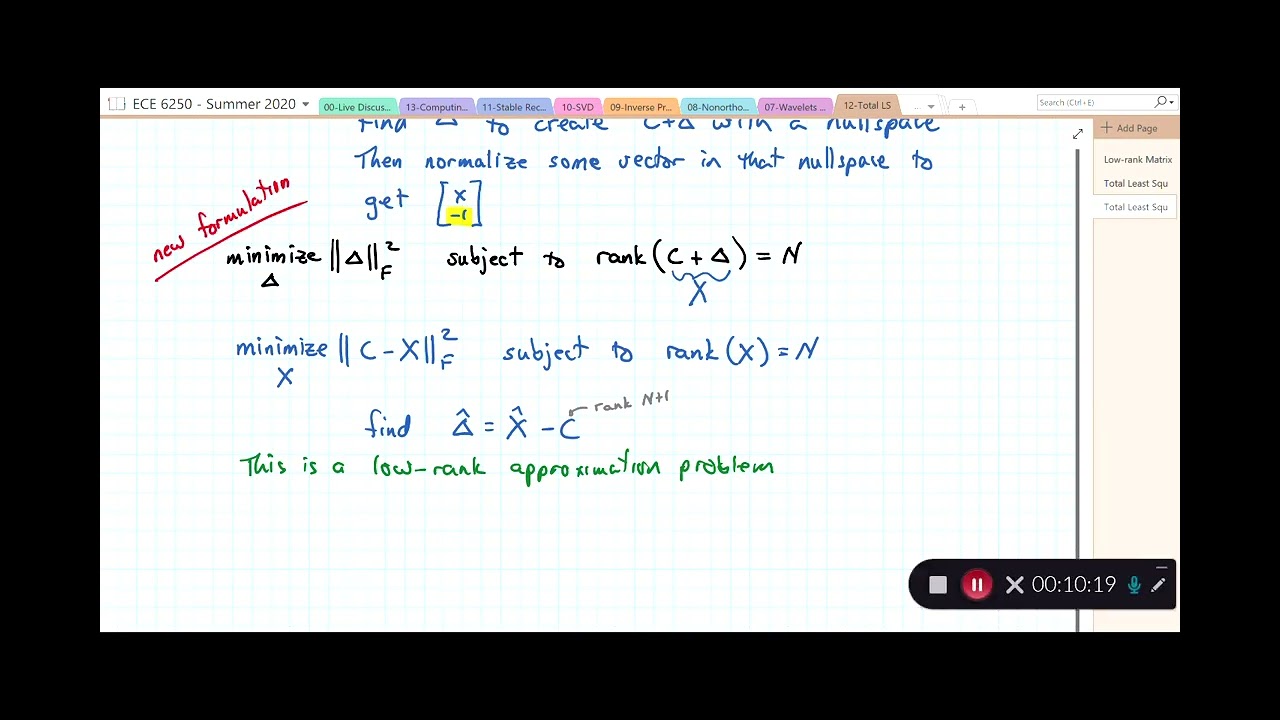 ECE 6250 - Summer 2020
00-Live Discus...
13-Computin...
11-Stable Rec...
10-SVD
09-Inverse Pr...
08-Nonortho...
07-Wavelets ...
12-Total LS
...
Search (Ctrl+E)
Add Page
Low-rank Matrix
Total Least Squ
Total Least Squ
find Δ to create C+Δ with a nullspace
Then normalize some vector in that nullspace to
get [x -1]
new formulation
minimize ||Δ||²_F subject to rank(C + Δ) = N
Δ
X
minimize ||C - X||²_F subject to rank(X) = N
X
rank N+1
find Δ̂ = X̂ - C
This is a low-rank approximation problem
00:10:19